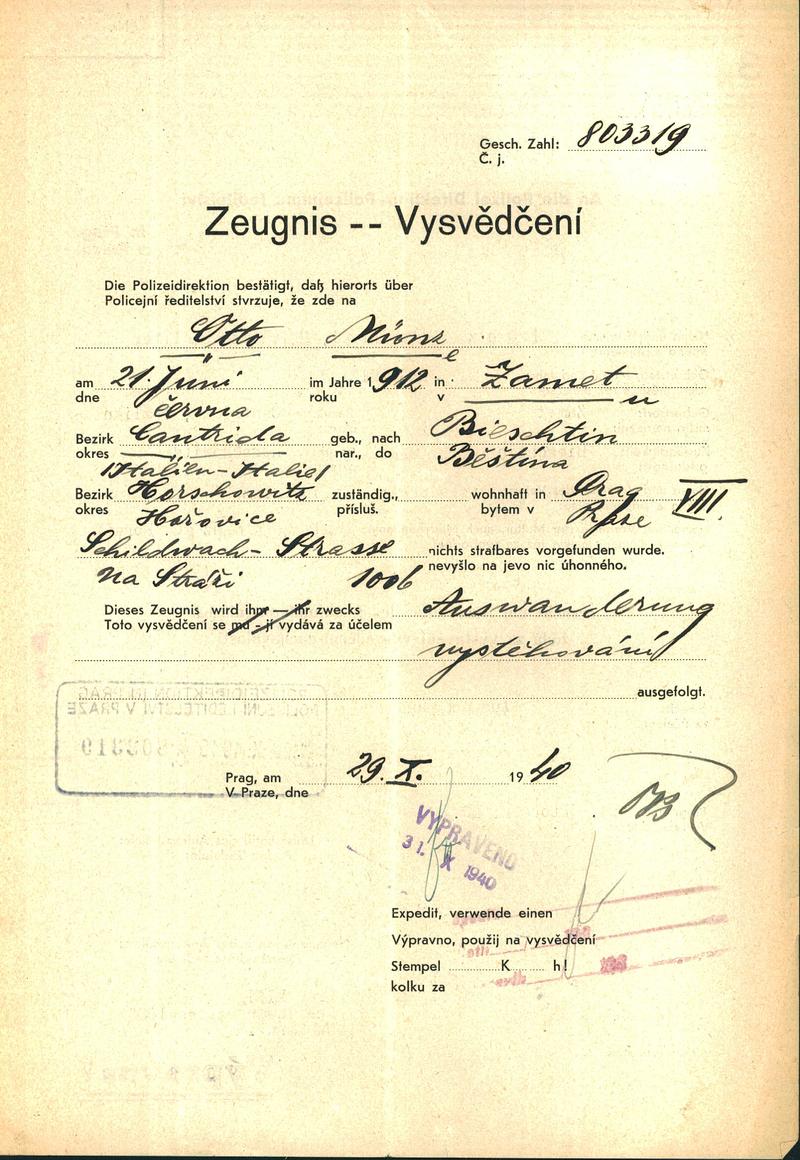 Gesch. Zahl: 803319
Č. j.
Zeugnis -- Vysvědčení
Die Polizeidirektion bestätigt, daß hierorts über
Policejní ředitelství stvrzuje, že zde na
Otto Münz
e
am 21. Juni im Jahre 1912 in Zamet
dne června roku v u
Bezirk Cantrida geb., nach Bieschtin
okres Italien-Italie nar., do Běština
Bezirk Horschowitz zuständig., wohnhaft in Prag VIII.
okres Hořovice přísluš. bytem v Praze
Schildwach- Strasse nichts strafbares vorgefunden wurde.
na Stráži 1006 nevyšlo na jevo nic úhonného.
Dieses Zeugnis wird ihm — ihr zwecks Auswanderung
Toto vysvědčení se mu - jí vydává za účelem
vystěhování
ausgefolgt.
POLIZEIDIREKTION IN PRAG
POLICEJNÍ ŘEDITELSTVÍ V PRAZE
Prag, am 29. X. 1940
V Praze, dne
VYPRAVENO
31. X 1940
Expedit, verwende einen
Výpravno, použij na vysvědčení
Stempel K h!
kolku za